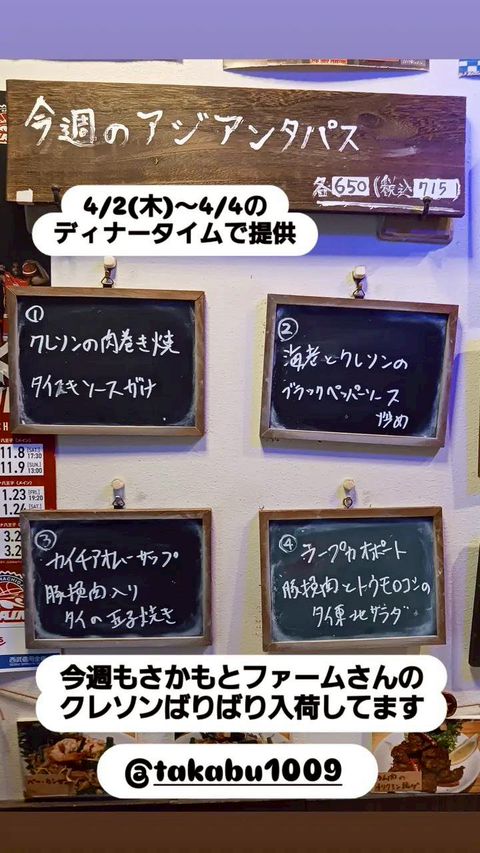 今週のアジアンタパス
各650(税込715)
4/2(木)〜4/4の
ディナータイムで提供
①
クレソンの肉巻き焼
タイスキソースがけ
②
海老とクレソンの
ブラックペッパーソース
炒め
③
カイチアオムーサップ
豚挽肉入り
タイの玉子焼き
④
ラープカオポート
豚挽肉とトウモロコシの
タイ東北サラダ
11.8 [SAT.] 17:30
11.9 [SUN.] 13:00
1.23 [FRI.] 19:20
1.24
3.2
3.2
西武信用金
今週もさかもとファームさんの
クレソンばりばり入荷してます
@takabu1009